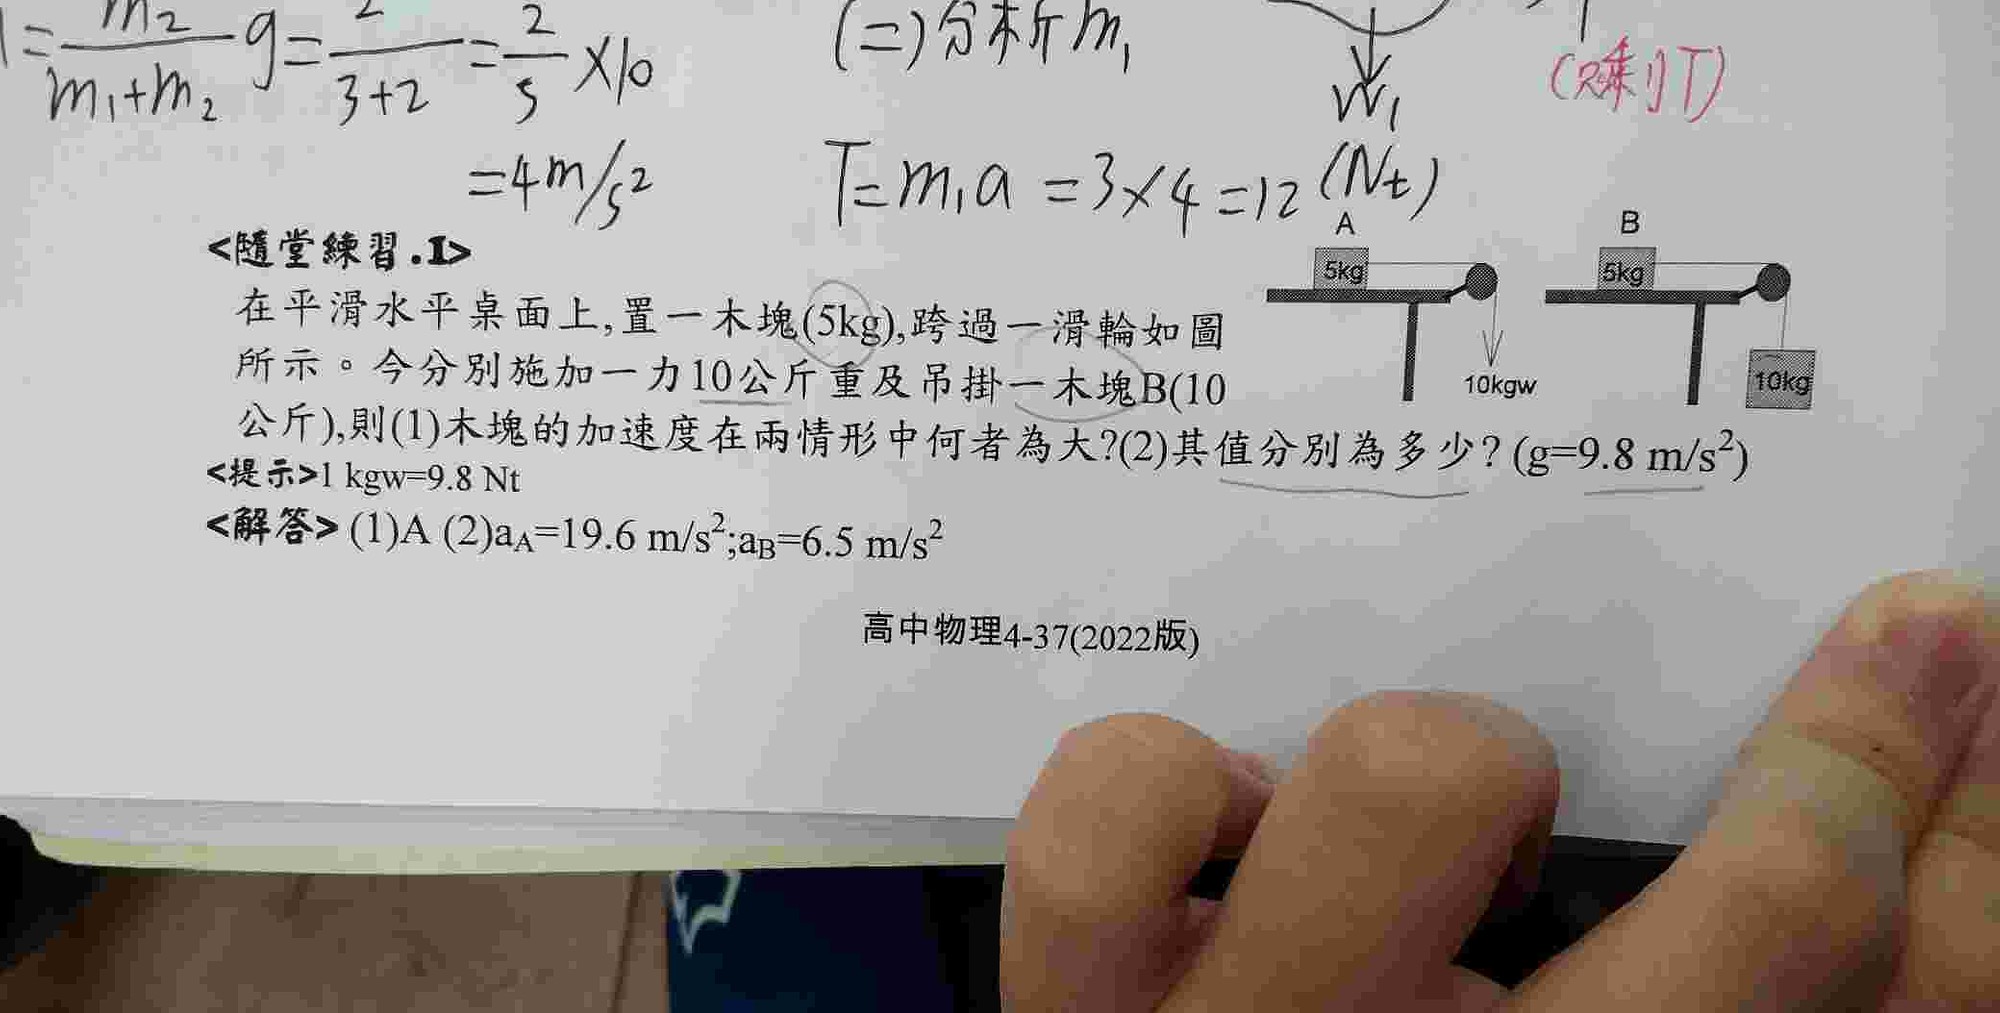 = m₂/(m₁+m₂) g = 2/(3+2) = 2/5 ×10
(二)分析m₁
W₁
(剩T)
=4m/s²
T=m₁a =3×4=12 (Nt)
<隨堂練習.I>
A
B
5kg
5kg
在平滑水平桌面上,置一木塊(5kg),跨過一滑輪如圖
所示。今分別施加一力10公斤重及吊掛一木塊B(10
10kgw
10kg
公斤),則(1)木塊的加速度在兩情形中何者為大?(2)其值分別為多少? (g=9.8 m/s²)
<提示>1 kgw=9.8 Nt
<解答> (1)A (2)aA=19.6 m/s²;aB=6.5 m/s²
高中物理4-37(2022版)